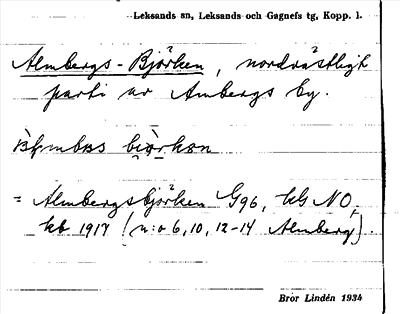 Leksands sn, Leksands och Gagnefs tg, Kopp. l.
Almbergs-Björken, nordvästligt
parti av Ambergs by.
= Almbergsbjörken G96, kb NO,
kb 1917 (n:o 6, 10, 12-14 Almberg).
Bror Lindén 1934